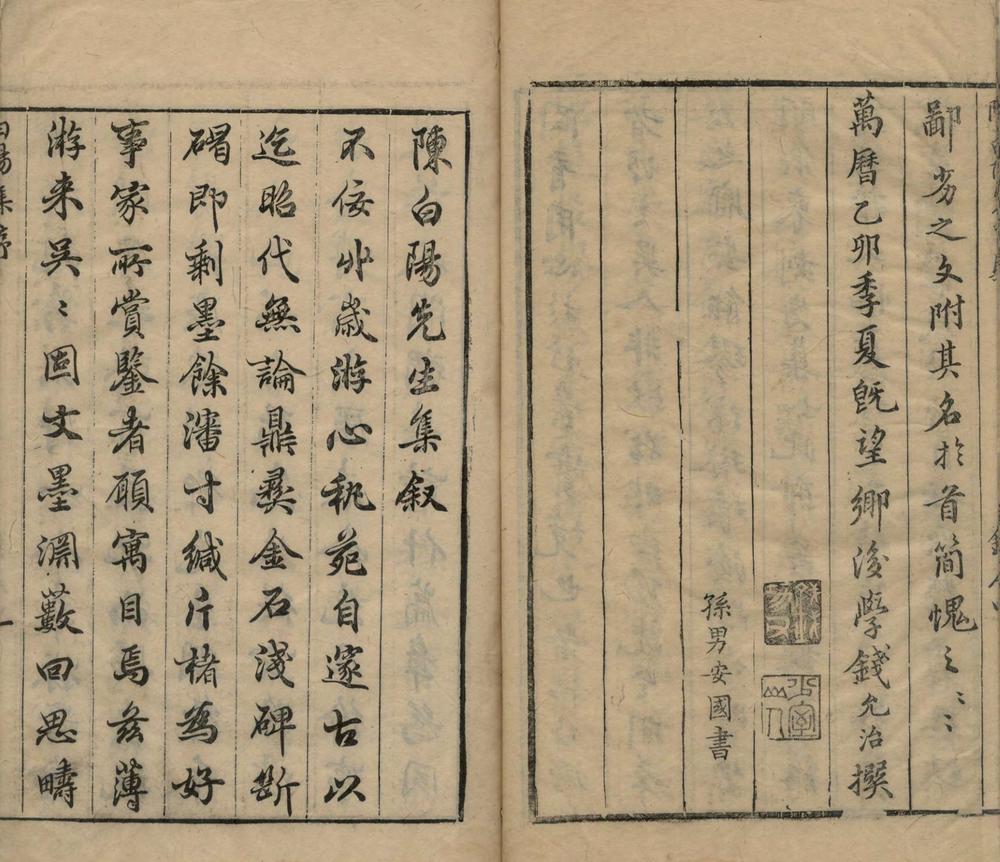 鄙劣之文附其名於首簡愧之〻〻
萬曆乙卯季夏既望鄉後學錢允治撰
孫男安國書
陳白陽先生集叙
不佞丱歲游心秇苑自邃古以
迄昭代無論鼎彝金石淺碑斷
碣即剩墨餘瀋寸縑片楮為好
事家所賞鑒者願寓目焉玆薄
游来吳〻固文墨淵藪回思疇
白陽集序
一